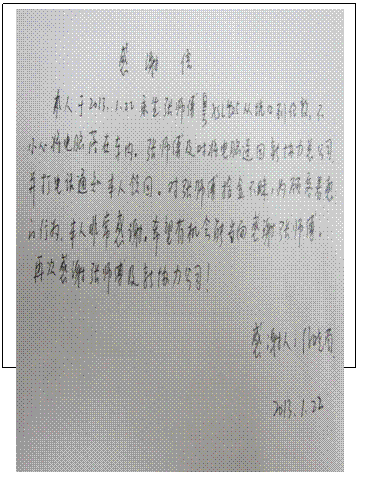 感谢信
本人于2013.1.22乘坐张师傅粤 从 到 ,不
小心将电脑落在车内。张师傅及时将电脑送回新协力总公司
并打电话通知本人领回。对张师傅拾金不昧,为乘客着想
的行为,本人非常感谢。希望有机会能当面感谢张师傅,
再次感谢张师傅及新协力公司!
感谢人:
2013.1.22